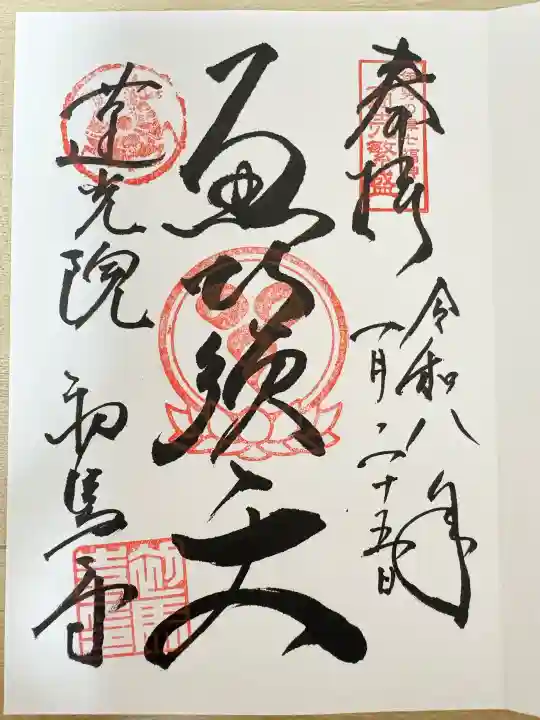 奉拝
令和八年
一月二十五日
恵比須天
蓮光院 初馬寺